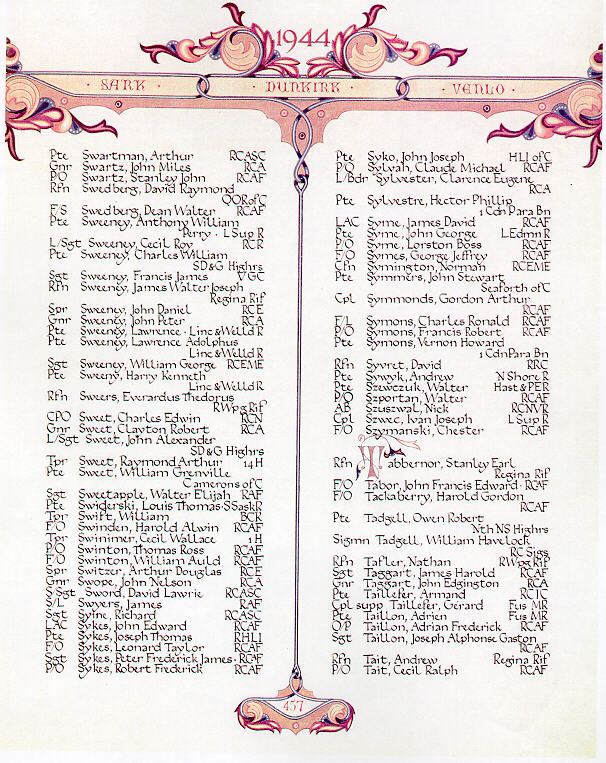 1944
SARK · DUNKIRK · VENLO
Pte Swartman, Arthur RCASC
Gnr Swartz, John Miles RCA
P/O Swartz, Stanley John RCAF
Rfn Swedberg, David Raymond
QOR of C
F/S Swedberg, Dean Walter RCAF
Pte Sweeney, Anthony William
Perry · L Sup R
L/Sgt Sweeney, Cecil Roy RCR
Pte Sweeney, Charles William
SD&G Highrs
Sgt Sweeney, Francis James VGC
Rfn Sweeney, James Walter Joseph
Regina Rif
Spr Sweeney, John Daniel RCE
Gnr Sweeney, John Peter RCA
Pte Sweeney, Lawrence · Linc & Welld R
Pte Sweeney, Lawrence Adolphus
Linc & Welld R
Sgt Sweeney, William George RCEME
Pte Sweeny, Harry Kenneth
Linc & Welld R
Rfn Sweers, Everardus Thedorus
RWpg Rif
CPO Sweet, Charles Edwin RCN
Gnr Sweet, Clayton Robert RCA
L/Sgt Sweet, John Alexander
SD&G Highrs
Tpr Sweet, Raymond Arthur 14 H
Pte Sweet, William Grenville
Camerons of C
Sgt Sweetapple, Walter Elijah RAF
Pte Swiderski, Louis Thomas · S Sask R
Tpr Swift, William BCR
F/O Swinden, Harold Alwin RCAF
Tpr Swinimer, Cecil Wallace 1 H
P/O Swinton, Thomas Ross RCAF
F/O Swinton, William Auld RCAF
Spr Switzer, Arthur Douglas RCE
Gnr Swope, John Nelson RCA
S/Sgt Sword, David Lawrie RCASC
S/L Swyers, James RAF
Sgt Syme, Richard RCASC
LAC Sykes, John Edward RCAF
Pte Sykes, Joseph Thomas RHLI
F/O Sykes, Leonard Taylor RCAF
Sgt Sykes, Peter Frederick James · RCAF
P/O Sykes, Robert Frederick RCAF
Pte Syko, John Joseph HLI of C
P/O Sylvah, Claude Michael RCAF
L/Bdr Sylvester, Clarence Eugene
RCA
Pte Sylvestre, Hector Phillip
1 Cdn Para Bn
LAC Syme, James David RCAF
Pte Syme, John George L Edmn R
P/O Syme, Lorston Boss RCAF
F/O Symes, George Jeffrey RCAF
Cfn Symington, Norman RCEME
Pte Symmers, John Stewart
Seaforth of C
Cpl Symmonds, Gordon Arthur
RCAF
F/L Symons, Charles Ronald RCAF
P/O Symons, Francis Robert RCAF
Pte Symons, Vernon Howard
1 Cdn Para Bn
Rfn Syvret, David RRC
Pte Sywyk, Andrew N Shore R
Pte Szewczuk, Walter Hast & PER
P/O Szportan, Walter RCAF
AB Szuszwal, Nick RCNVR
Cpl Szwec, Ivan Joseph L Sup R
F/O Szymanski, Chester RCAF
Rfn Tabbernor, Stanley Earl
Regina Rif
F/O Tabor, John Francis Edward · RCAF
F/O Tackaberry, Harold Gordon
RCAF
Pte Tadgell, Owen Robert
Nth NS Highrs
Sigmn Tadgell, William Havelock
RC Sigs
Rfn Tafler, Nathan RWpg Rif
Sgt Taggart, James Harold RCAF
Gnr Taggart, John Edgington RCA
Pte Taillefer, Armand RCIC
Cpl supp Taillefer, Gerard Fus MR
Pte Taillon, Adrien Fus MR
O/P Taillon, Adrian Frederick RCAF
Sgt Taillon, Joseph Alphonse Gaston
RCAF
Rfn Tait, Andrew Regina Rif
P/O Tait, Cecil Ralph RCAF
457